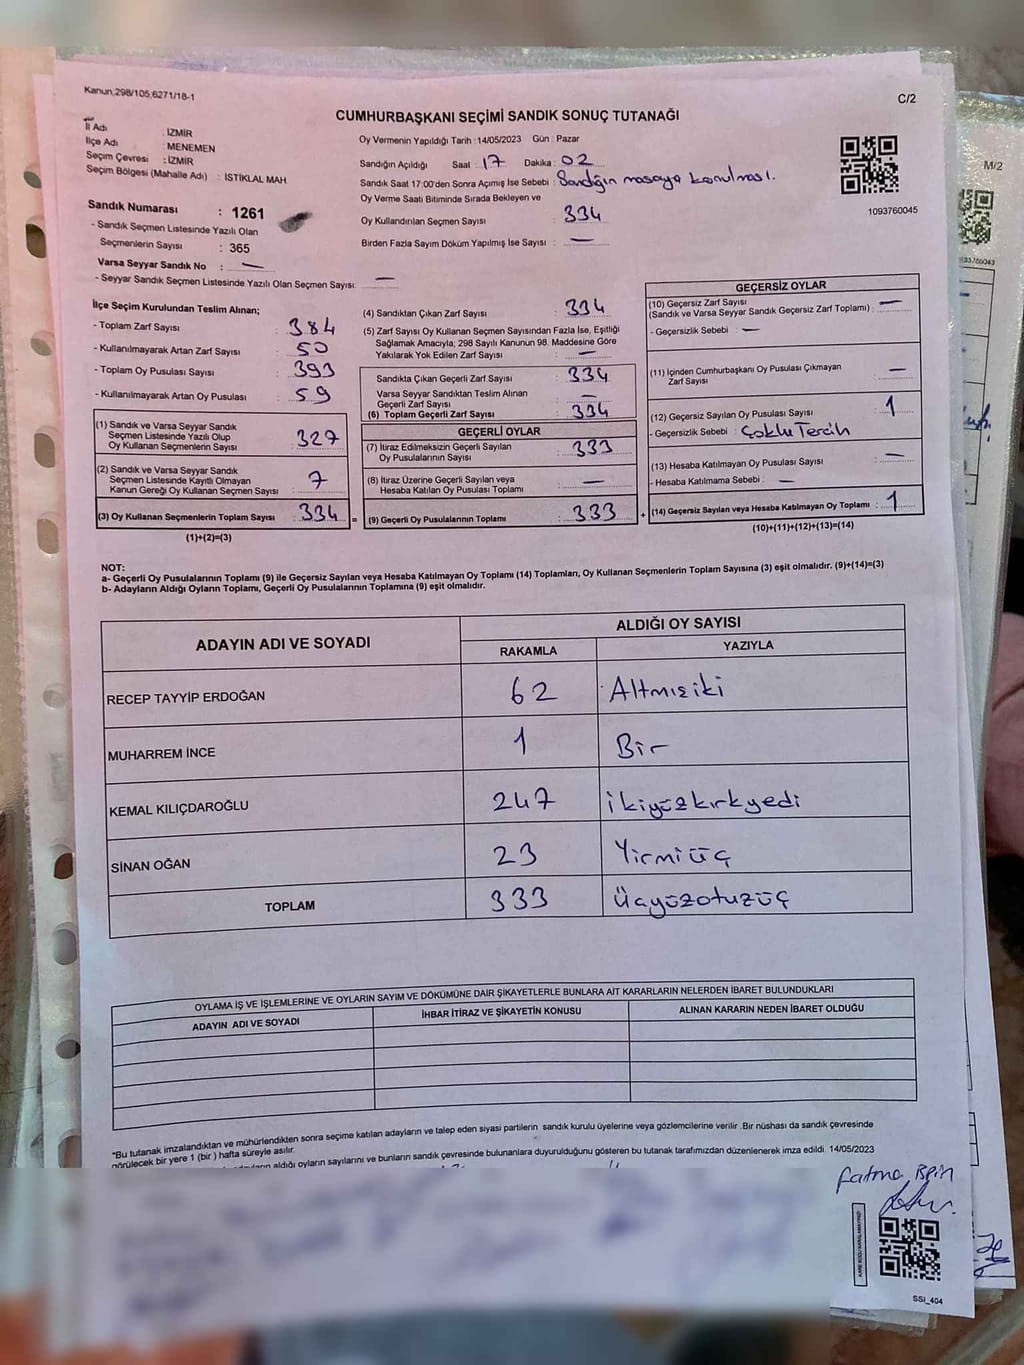 Kanun,298/105,6271/18-1
C/2
CUMHURBAŞKANI SEÇİMİ SANDIK SONUÇ TUTANAĞI
İl Adı : İZMİR
İlçe Adı : MENEMEN
Seçim Çevresi : İZMİR
Seçim Bölgesi (Mahalle Adı) : İSTİKLAL MAH
Sandık Numarası : 1261
- Sandık Seçmen Listesinde Yazılı Olan
Seçmenlerin Sayısı : 365
Varsa Seyyar Sandık No : —
- Seyyar Sandık Seçmen Listesinde Yazılı Olan Seçmen Sayısı: —
Oy Vermenin Yapıldığı Tarih :14/05/2023 Gün : Pazar
Sandığın Açıldığı Saat : 17 Dakika : 02
Sandık Saat 17:00'den Sonra Açımış İse Sebebi : Sandığın masaya konulması.
Oy Verme Saati Bitiminde Sırada Bekleyen ve
Oy Kullandırılan Seçmen Sayısı : 334
Birden Fazla Sayım Döküm Yapılmış İse Sayısı : —
1093760045
M/2
İlçe Seçim Kurulundan Teslim Alınan;
- Toplam Zarf Sayısı : 384
- Kullanılmayarak Artan Zarf Sayısı : 50
- Toplam Oy Pusulası Sayısı : 393
- Kullanılmayarak Artan Oy Pusulası : 59
(1) Sandık ve Varsa Seyyar Sandık
Seçmen Listesinde Yazılı Olup
Oy Kullanan Seçmenlerin Sayısı : 327
(2) Sandık ve Varsa Seyyar Sandık
Seçmen Listesinde Kayıtlı Olmayan
Kanun Gereği Oy Kullanan Seçmen Sayısı : 7
(3) Oy Kullanan Seçmenlerin Toplam Sayısı : 334 =
(1)+(2)=(3)
(4) Sandıktan Çıkan Zarf Sayısı : 334
(5) Zarf Sayısı Oy Kullanan Seçmen Sayısından Fazla İse, Eşitliği
Sağlamak Amacıyla; 298 Sayılı Kanunun 98. Maddesine Göre
Yakılarak Yok Edilen Zarf Sayısı : —
Sandıkta Çıkan Geçerli Zarf Sayısı : 334
Varsa Seyyar Sandıktan Teslim Alınan
Geçerli Zarf Sayısı : —
(6) Toplam Geçerli Zarf Sayısı : 334
GEÇERLİ OYLAR
(7) İtiraz Edilmeksizin Geçerli Sayılan
Oy Pusulalarının Sayısı : 333
(8) İtiraz Üzerine Geçerli Sayılan veya
Hesaba Katılan Oy Pusulası Toplamı : —
(9) Geçerli Oy Pusulalarının Toplamı : 333 +
GEÇERSİZ OYLAR
(10) Geçersiz Zarf Sayısı
(Sandık ve Varsa Seyyar Sandık Geçersiz Zarf Toplamı) : —
- Geçersizlik Sebebi : —
(11) İçinden Cumhurbaşkanı Oy Pusulası Çıkmayan
Zarf Sayısı : —
(12) Geçersiz Sayılan Oy Pusulası Sayısı : 1
- Geçersizlik Sebebi : Çoklu Tercih
(13) Hesaba Katılmayan Oy Pusulası Sayısı : —
- Hesaba Katılmama Sebebi : —
(14) Geçersiz Sayılan veya Hesaba Katılmayan Oy Toplamı : 1
(10)+(11)+(12)+(13)=(14)
NOT:
a- Geçerli Oy Pusulalarının Toplamı (9) ile Geçersiz Sayılan veya Hesaba Katılmayan Oy Toplamı (14) Toplamları, Oy Kullanan Seçmenlerin Toplam Sayısına (3) eşit olmalıdır. (9)+(14)=(3)
b- Adayların Aldığı Oyların Toplamı, Geçerli Oy Pusulalarının Toplamına (9) eşit olmalıdır.
ADAYIN ADI VE SOYADI
ALDIĞI OY SAYISI
RAKAMLA YAZIYLA
RECEP TAYYİP ERDOĞAN 62 Altmışiki
MUHARREM İNCE 1 Bir
KEMAL KILIÇDAROĞLU 247 ikiyüzkırkyedi
SİNAN OĞAN 23 Yirmiüç
TOPLAM 333 Üçyüzotuzüç
OYLAMA İŞ VE İŞLEMLERİNE VE OYLARIN SAYIM VE DÖKÜMÜNE DAİR ŞİKAYETLERLE BUNLARA AİT KARARLARIN NELERDEN İBARET BULUNDUKLARI
ADAYIN ADI VE SOYADI İHBAR İTİRAZ VE ŞİKAYETİN KONUSU ALINAN KARARIN NEDEN İBARET OLDUĞU
*Bu tutanak imzalandıktan ve mühürlendikten sonra seçime katılan adayların ve talep eden siyasi partilerin sandık kurulu üyelerine veya gözlemcilerine verilir .Bir nüshası da sandık çevresinde
görülecek bir yere 1 (bir ) hafta süreyle asılır.
aldığı oyların sayılarını ve bunların sandık çevresinde bulunanlara duyurulduğunu gösteren bu tutanak tarafımızdan düzenlenerek imza edildi. 14/05/2023
Fatma
KARE KODU KARALAMAYINIZ!
SSİ_404